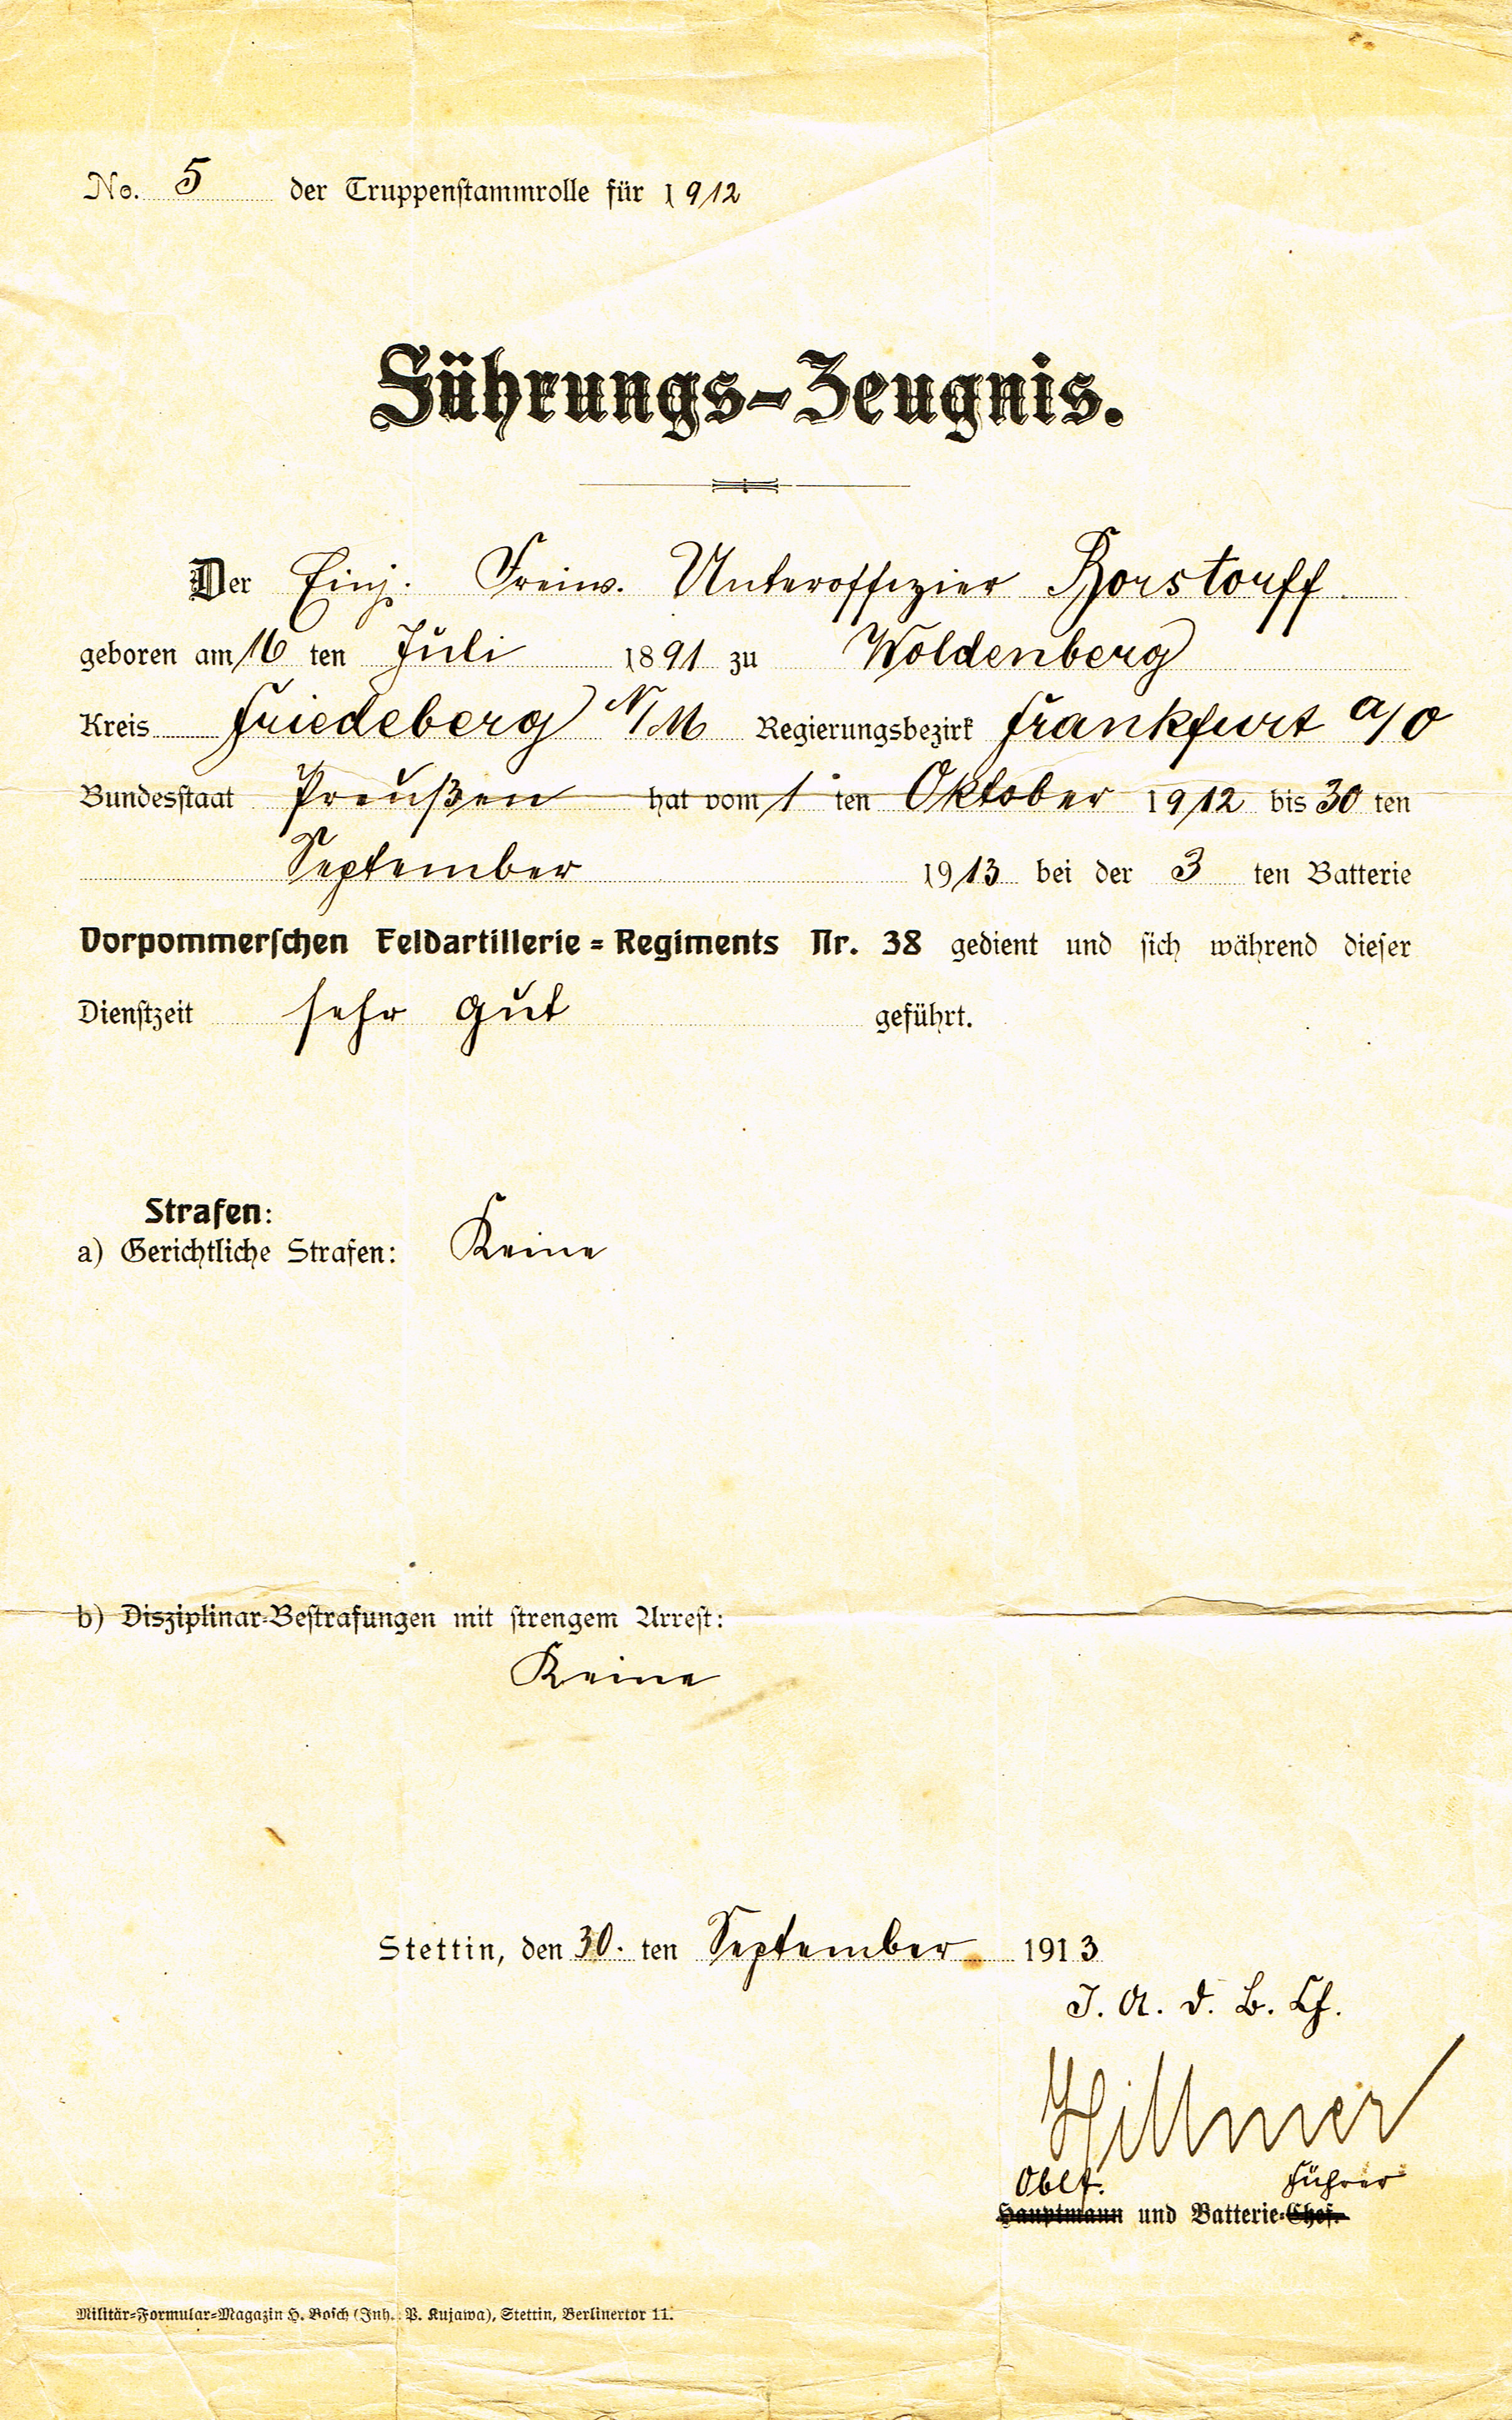 No. 5 der Truppenstammrolle für 1912
Führungs-Zeugnis.
Der Einj. Freiw. Unteroffizier Borstorff
geboren am 16 ten Juli 1891 zu Woldenberg
Kreis Friedeberg N/M Regierungsbezirk Frankfurt a/O
Bundesstaat Preußen hat vom 1 ten Oktober 1912 bis 30 ten
September 1913 bei der 3 ten Batterie
Vorpommerschen Feldartillerie=Regiments Nr. 38 gedient und sich während dieser
Dienstzeit sehr gut geführt.
Strafen:
a) Gerichtliche Strafen: Keine
b) Disziplinar-Bestrafungen mit strengem Arrest:
Keine
Stettin, den 30. ten September 1913
J. A. d. B. Ch.
Hillmer
Oblt. Führer
Hauptmann und Batterie-Chef.
Militär-Formular-Magazin H. Bosch (Inh. P. Kujawa), Stettin, Berlinertor 11.